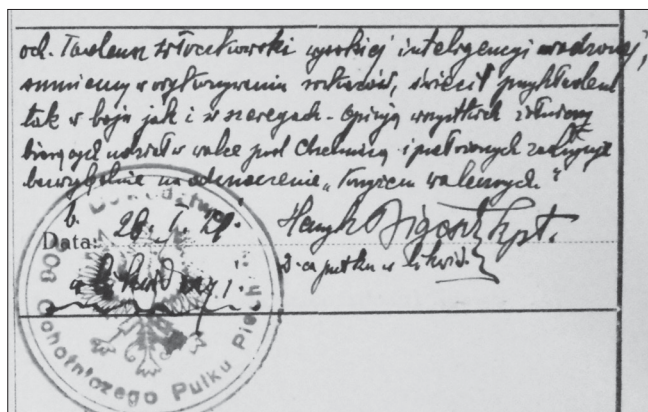 och. Tadeusz Włoczkowski wysokiej inteligencyi wrodzonej,
sumienny w wykonywaniu rozkazów, świecił przykładem
tak w boju jak i w szeregach – opinją wszystkich żołnierzy
biorących udział w walce pod Chełmicą i przełożonych zasługuje
bezwzględnie na odznaczenie „Krzyżem walecznych."
Data: 26. I. 21.
Henryk Bigoszt kpt.
w likwidacyi.
D-ca pułku w likwid.
Dowództwo
206 Ochotniczego Pułku Piech